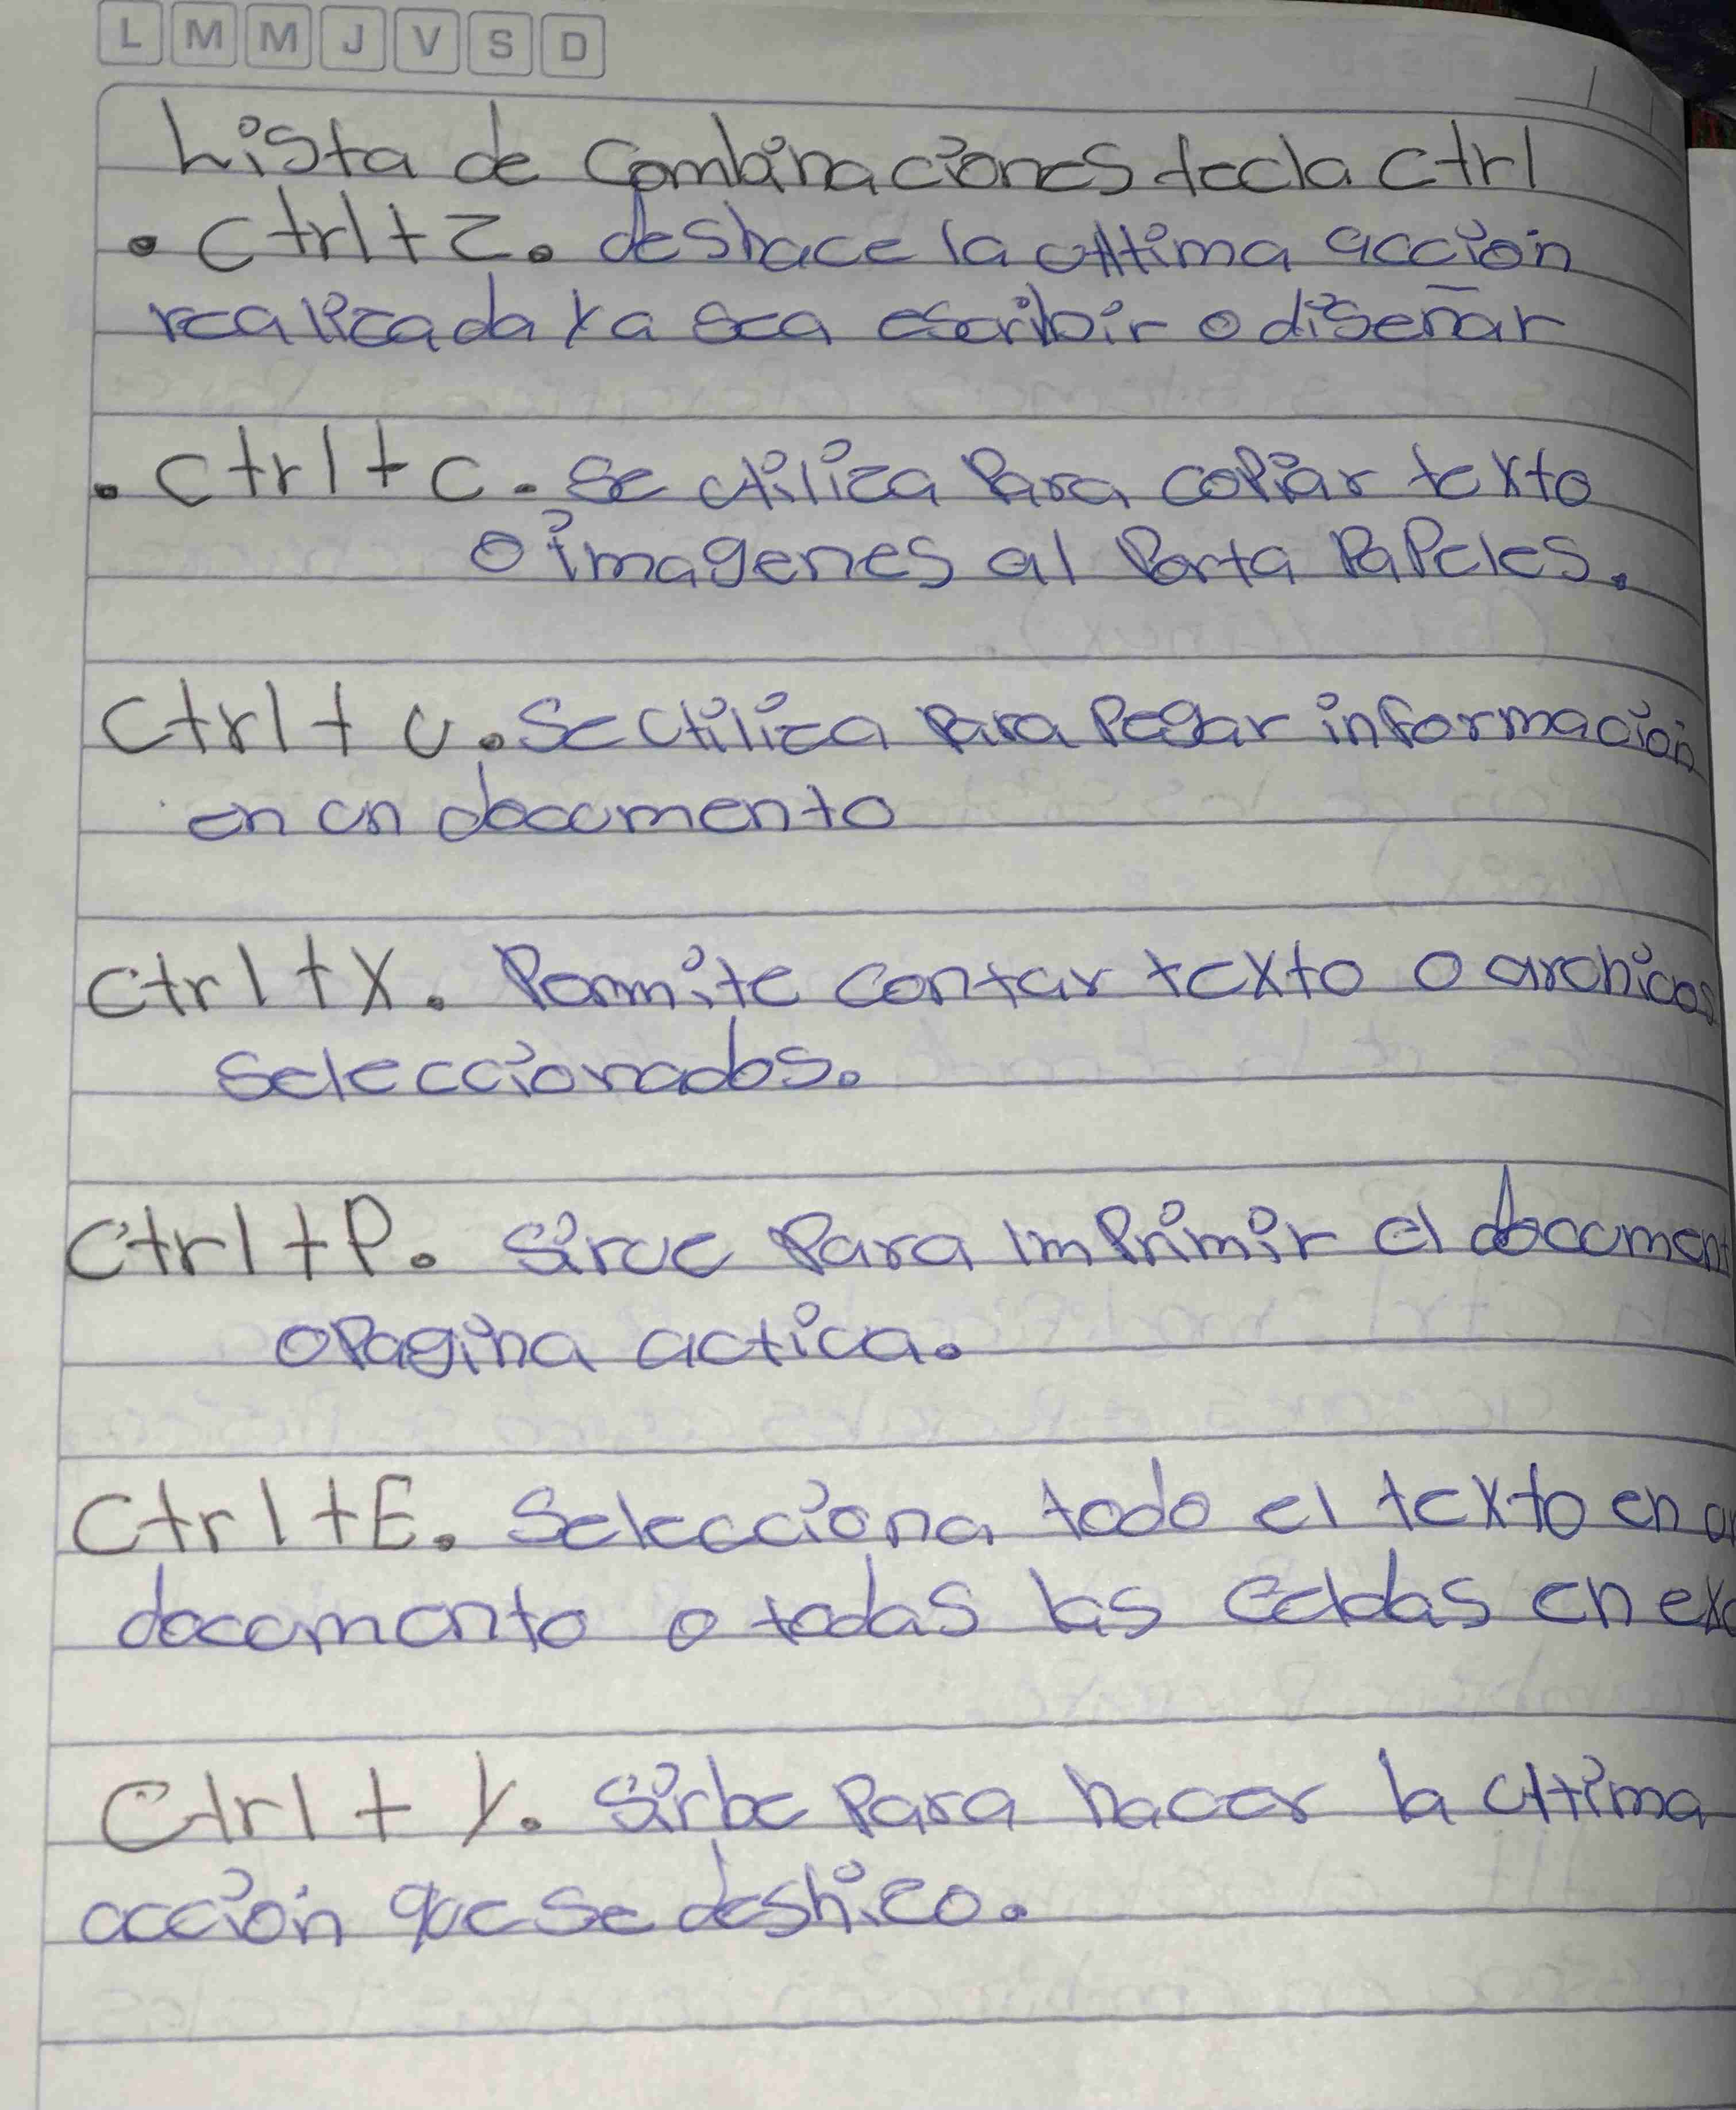 L M M J V S D
Lista de Combinaciones tecla Ctrl
• Ctrl + Z. deshace la ultima acción
realizada ya sea escribir o diseñar
• Ctrl + C. se utiliza Para copiar texto
o imagenes al Porta PaPeles.
Ctrl + U. Se utiliza Para Pegar información
en un documento
Ctrl + X. Permite contar texto o archivos
seleccionados.
Ctrl + P. sirve Para imPrimir el document
o Pagina activa.
Ctrl + E. Selecciona todo el texto en un
documento o todas las celdas en exc
Ctrl + Y. Sirbe Para hacer la ultima
acción que se deshizo.